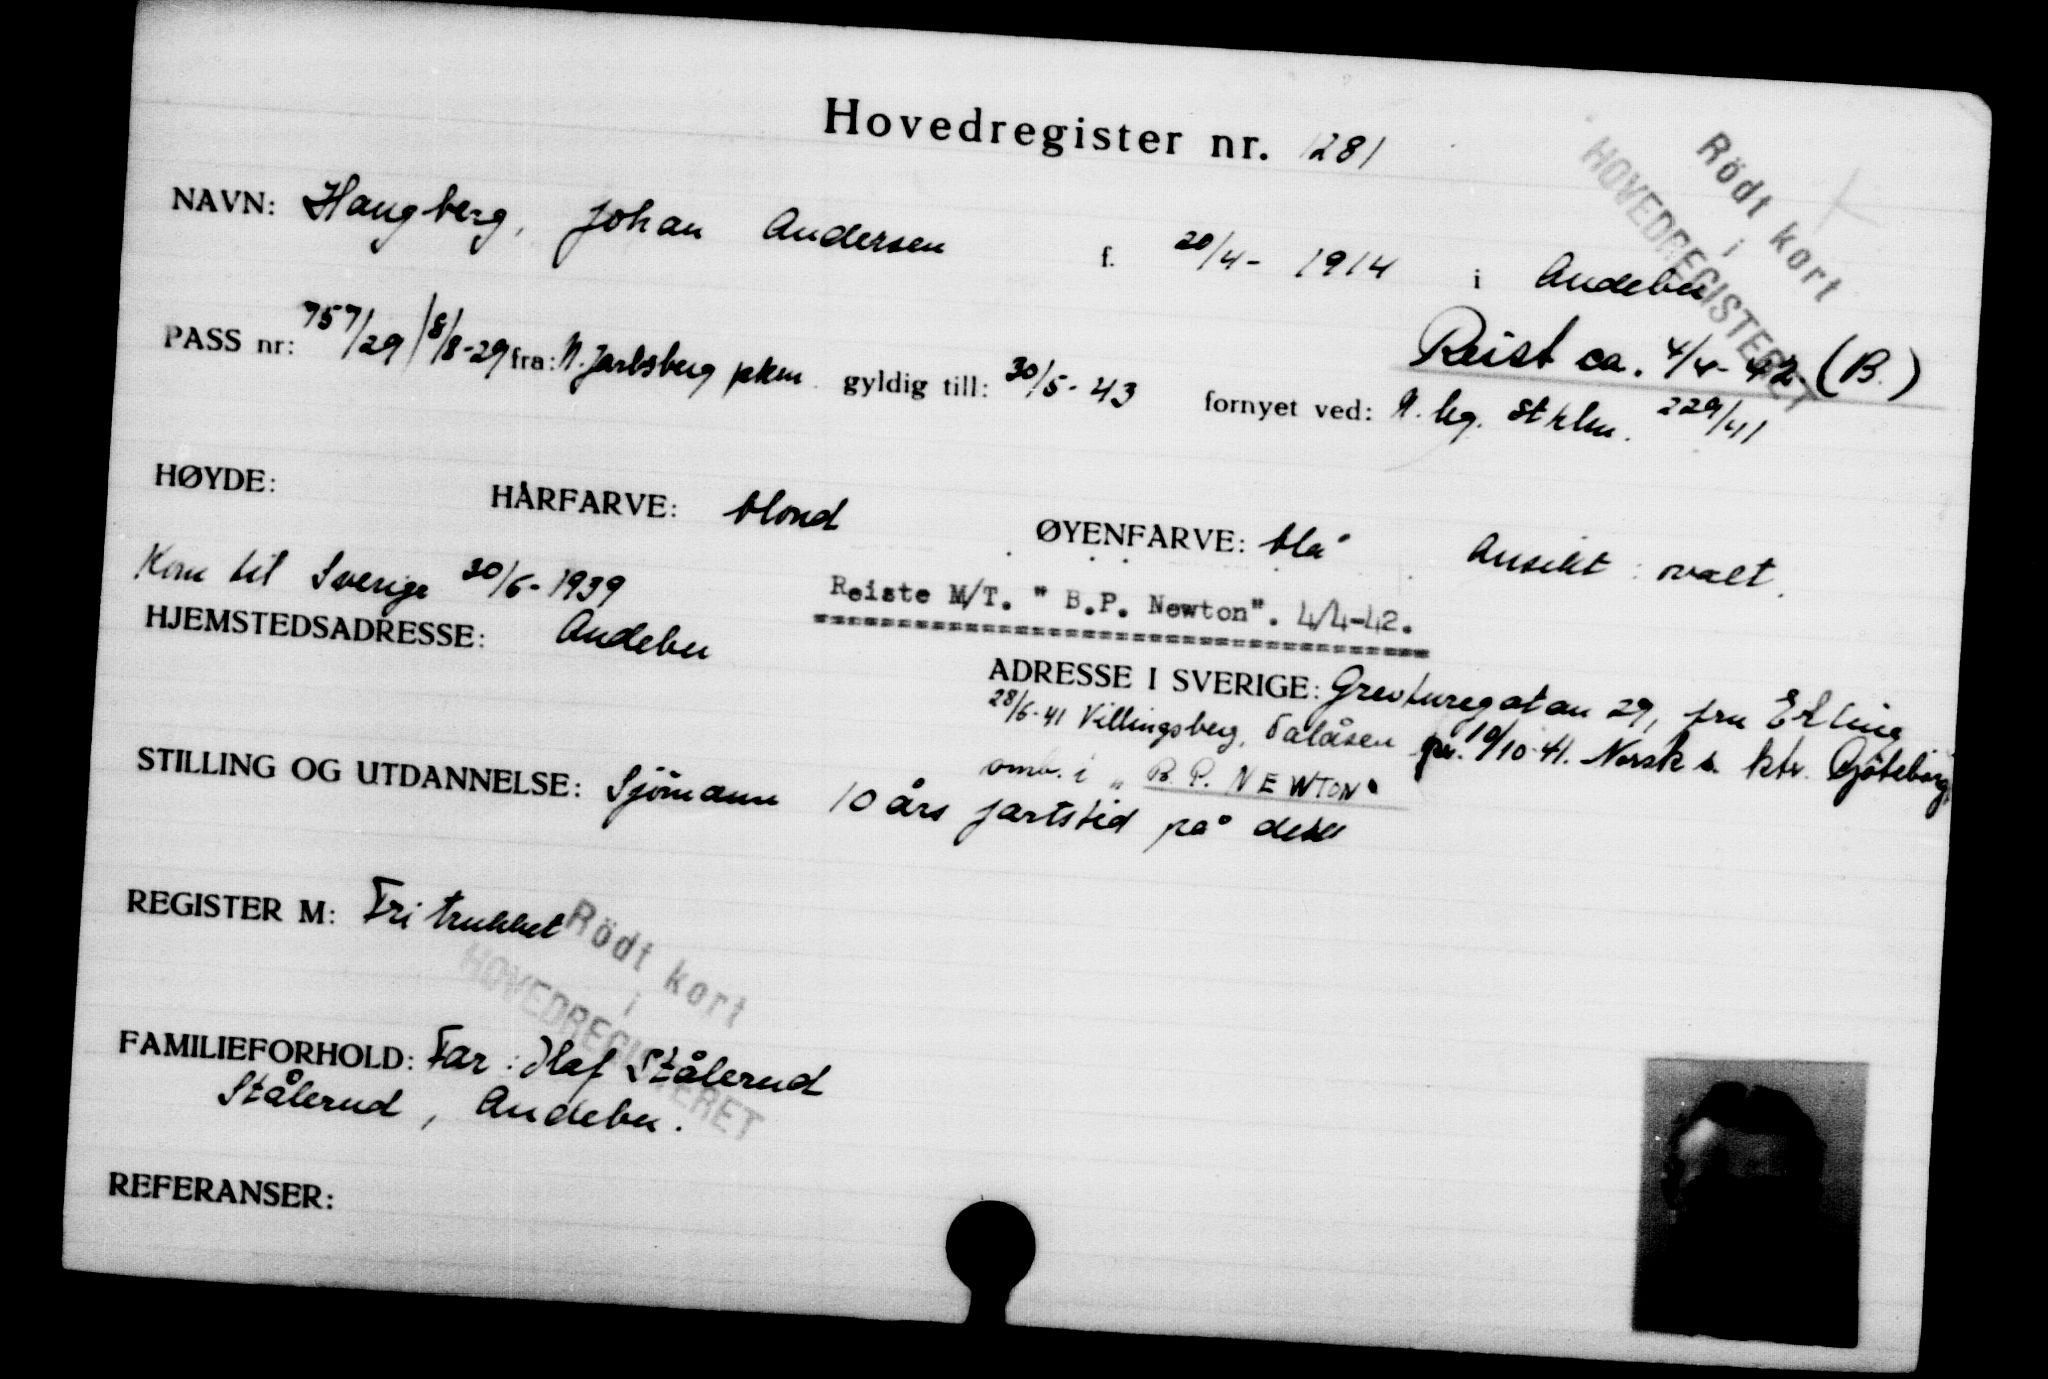 Hovedregister nr. 1281
Rödt kort
i
HOVEDREGISTERET
NAVN: Haugberg, Johan Andersen f. 20/4- 1914 i Andebu
Reist ca. 4/4-42 (B.)
PASS nr: 757/29 8/8-29 fra: N. Jarlsberg pkm gyldig till: 30/5-43 fornyet ved: N. leg. Sthlm. 229/41
HØYDE: HÅRFARVE: blond ØYENFARVE: blå Ansikt: ovalt.
Kom til Sverige 30/6-1939
Reiste M/T. " B.P. Newton". 4/4-42.
HJEMSTEDSADRESSE: Andebu
ADRESSE I SVERIGE: Grevturegatan 29, fru Ekling
28/6-41 Villingsberg, Falåsen pr. 10/10-41. Norsk s. ktr. Göteborg.
omb. i "B. P. NEWTON"
STILLING OG UTDANNELSE: Sjömann 10 års fartstid på dekk
REGISTER M: Fri trukket
Rödt kort
i
HOVEDREGISTERET
FAMILIEFORHOLD: Far: Olaf Stålerud
Stålerud, Andebu.
REFERANSER: